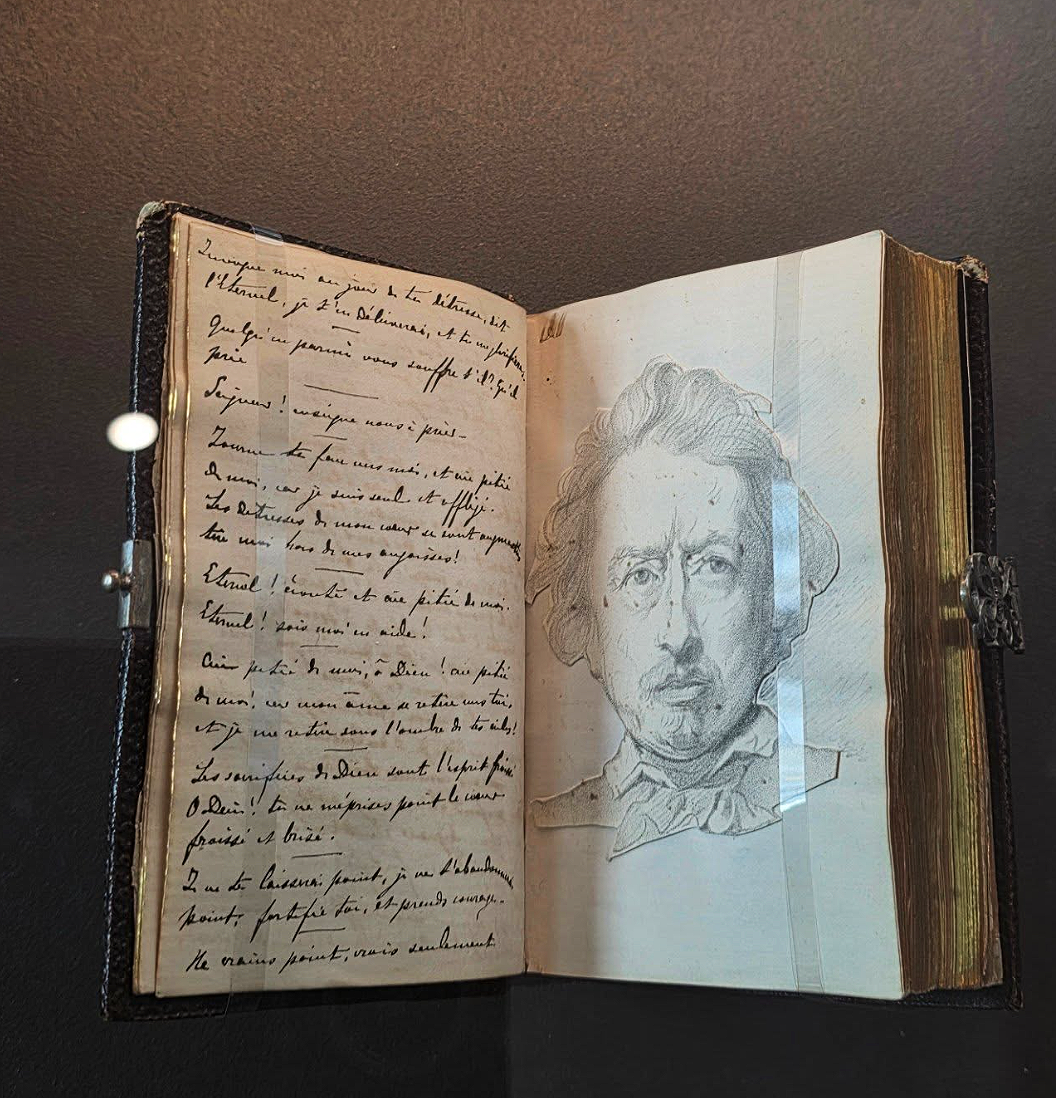 Invoque moi au jour de ta détresse, dit
l'Eternel, je t'en délivrerai, et tu me glorifieras.
Quelqu'un parmi vous souffre t'il? Qu'il
prie
Seigneur! enseigne nous à prier-
Tourne ta face vers moi, et aie pitié
de moi, car je suis seul et affligé.
Les détresses de mon cœur se sont augmentées
tire moi hors de mes angoisses!
Eternel! écoute et aie pitié de moi.
Eternel! sois moi en aide!
Aie pitié de moi, ô Dieu! aie pitié
de moi, car mon âme se retire vers toi,
et je me retire sous l'ombre de tes ailes!
Les sacrifices de Dieu sont l'esprit froissé
O Dieu! tu ne méprises point le cœur
froissé et brisé.
Je ne te laisserai point, je ne t'abandonnerai
point; fortifie toi, et prends courage-
Ne crains point, crois seulement